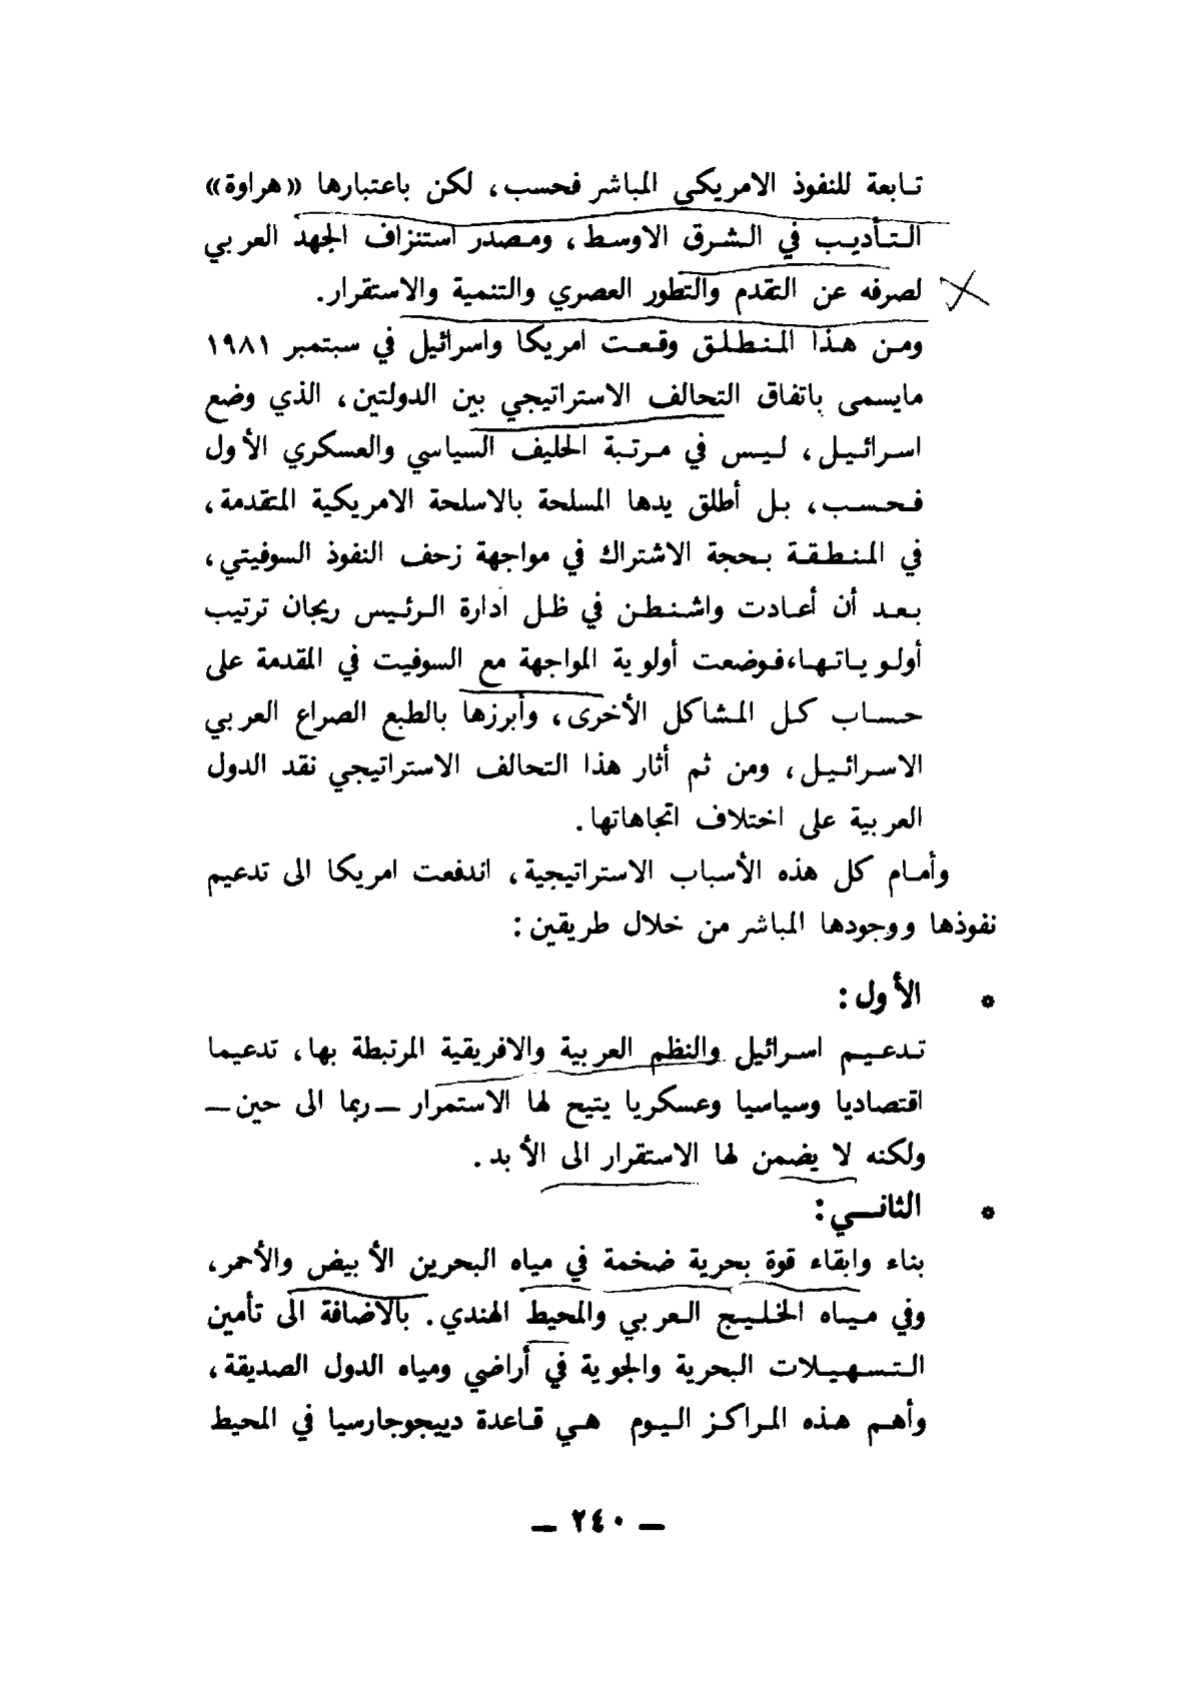 تابعة للنفوذ الامريكي المباشر فحسب، لكن باعتبارها «هراوة»
التأديب في الشرق الاوسط، ومصدر استنزاف الجهد العربي
لصرفه عن التقدم والتطور العصري والتنمية والاستقرار.
ومن هذا المنطلق وقعت امريكا واسرائيل في سبتمبر ١٩٨١
مايسمى باتفاق التحالف الاستراتيجي بين الدولتين، الذي وضع
اسرائيل، ليس في مرتبة الحليف السياسي والعسكري الأول
فحسب، بل أطلق يدها المسلحة بالاسلحة الامريكية المتقدمة،
في المنطقة بحجة الاشتراك في مواجهة زحف النفوذ السوفيتي،
بعد أن أعادت واشنطن في ظل ادارة الرئيس ريجان ترتيب
أولوياتها،فوضعت أولوية المواجهة مع السوفيت في المقدمة على
حساب كل المشاكل الأخرى، وأبرزها بالطبع الصراع العربي
الاسرائيل، ومن ثم أثار هذا التحالف الاستراتيجي نقد الدول
العربية على اختلاف اتجاهاتها.
وأمام كل هذه الأسباب الاستراتيجية، اندفعت امريكا الى تدعيم
نفوذها ووجودها المباشر من خلال طريقين:
* الأول:
تدعيم اسرائيل والنظم العربية والافريقية المرتبطة بها، تدعيما
اقتصاديا وسياسيا وعسكريا يتيح لها الاستمرار ــ ربما الى حين ــ
ولكنه لا يضمن لها الاستقرار الى الأبد.
* الثاني:
بناء وابقاء قوة بحرية ضخمة في مياه البحرين الأبيض والأحمر،
وفي مياه الخليج العربي والمحيط الهندي. بالاضافة الى تأمين
التسهيلات البحرية والجوية في أراضي ومياه الدول الصديقة،
وأهم هذه المراكز اليوم هي قاعدة دييجوجارسيا في المحيط
ــ ٢٤٠ ــ